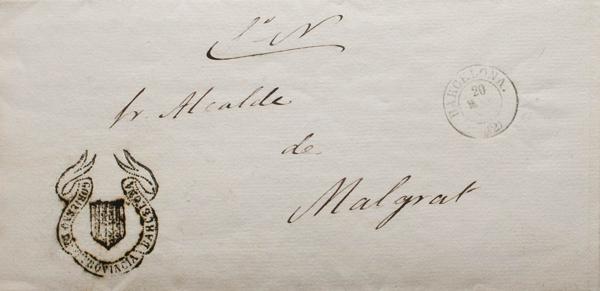 Sr Alcalde
de
Malgrat
BARCELONA.
20
(2)
GOBIERNO DE PROVINCIA BARCELONA